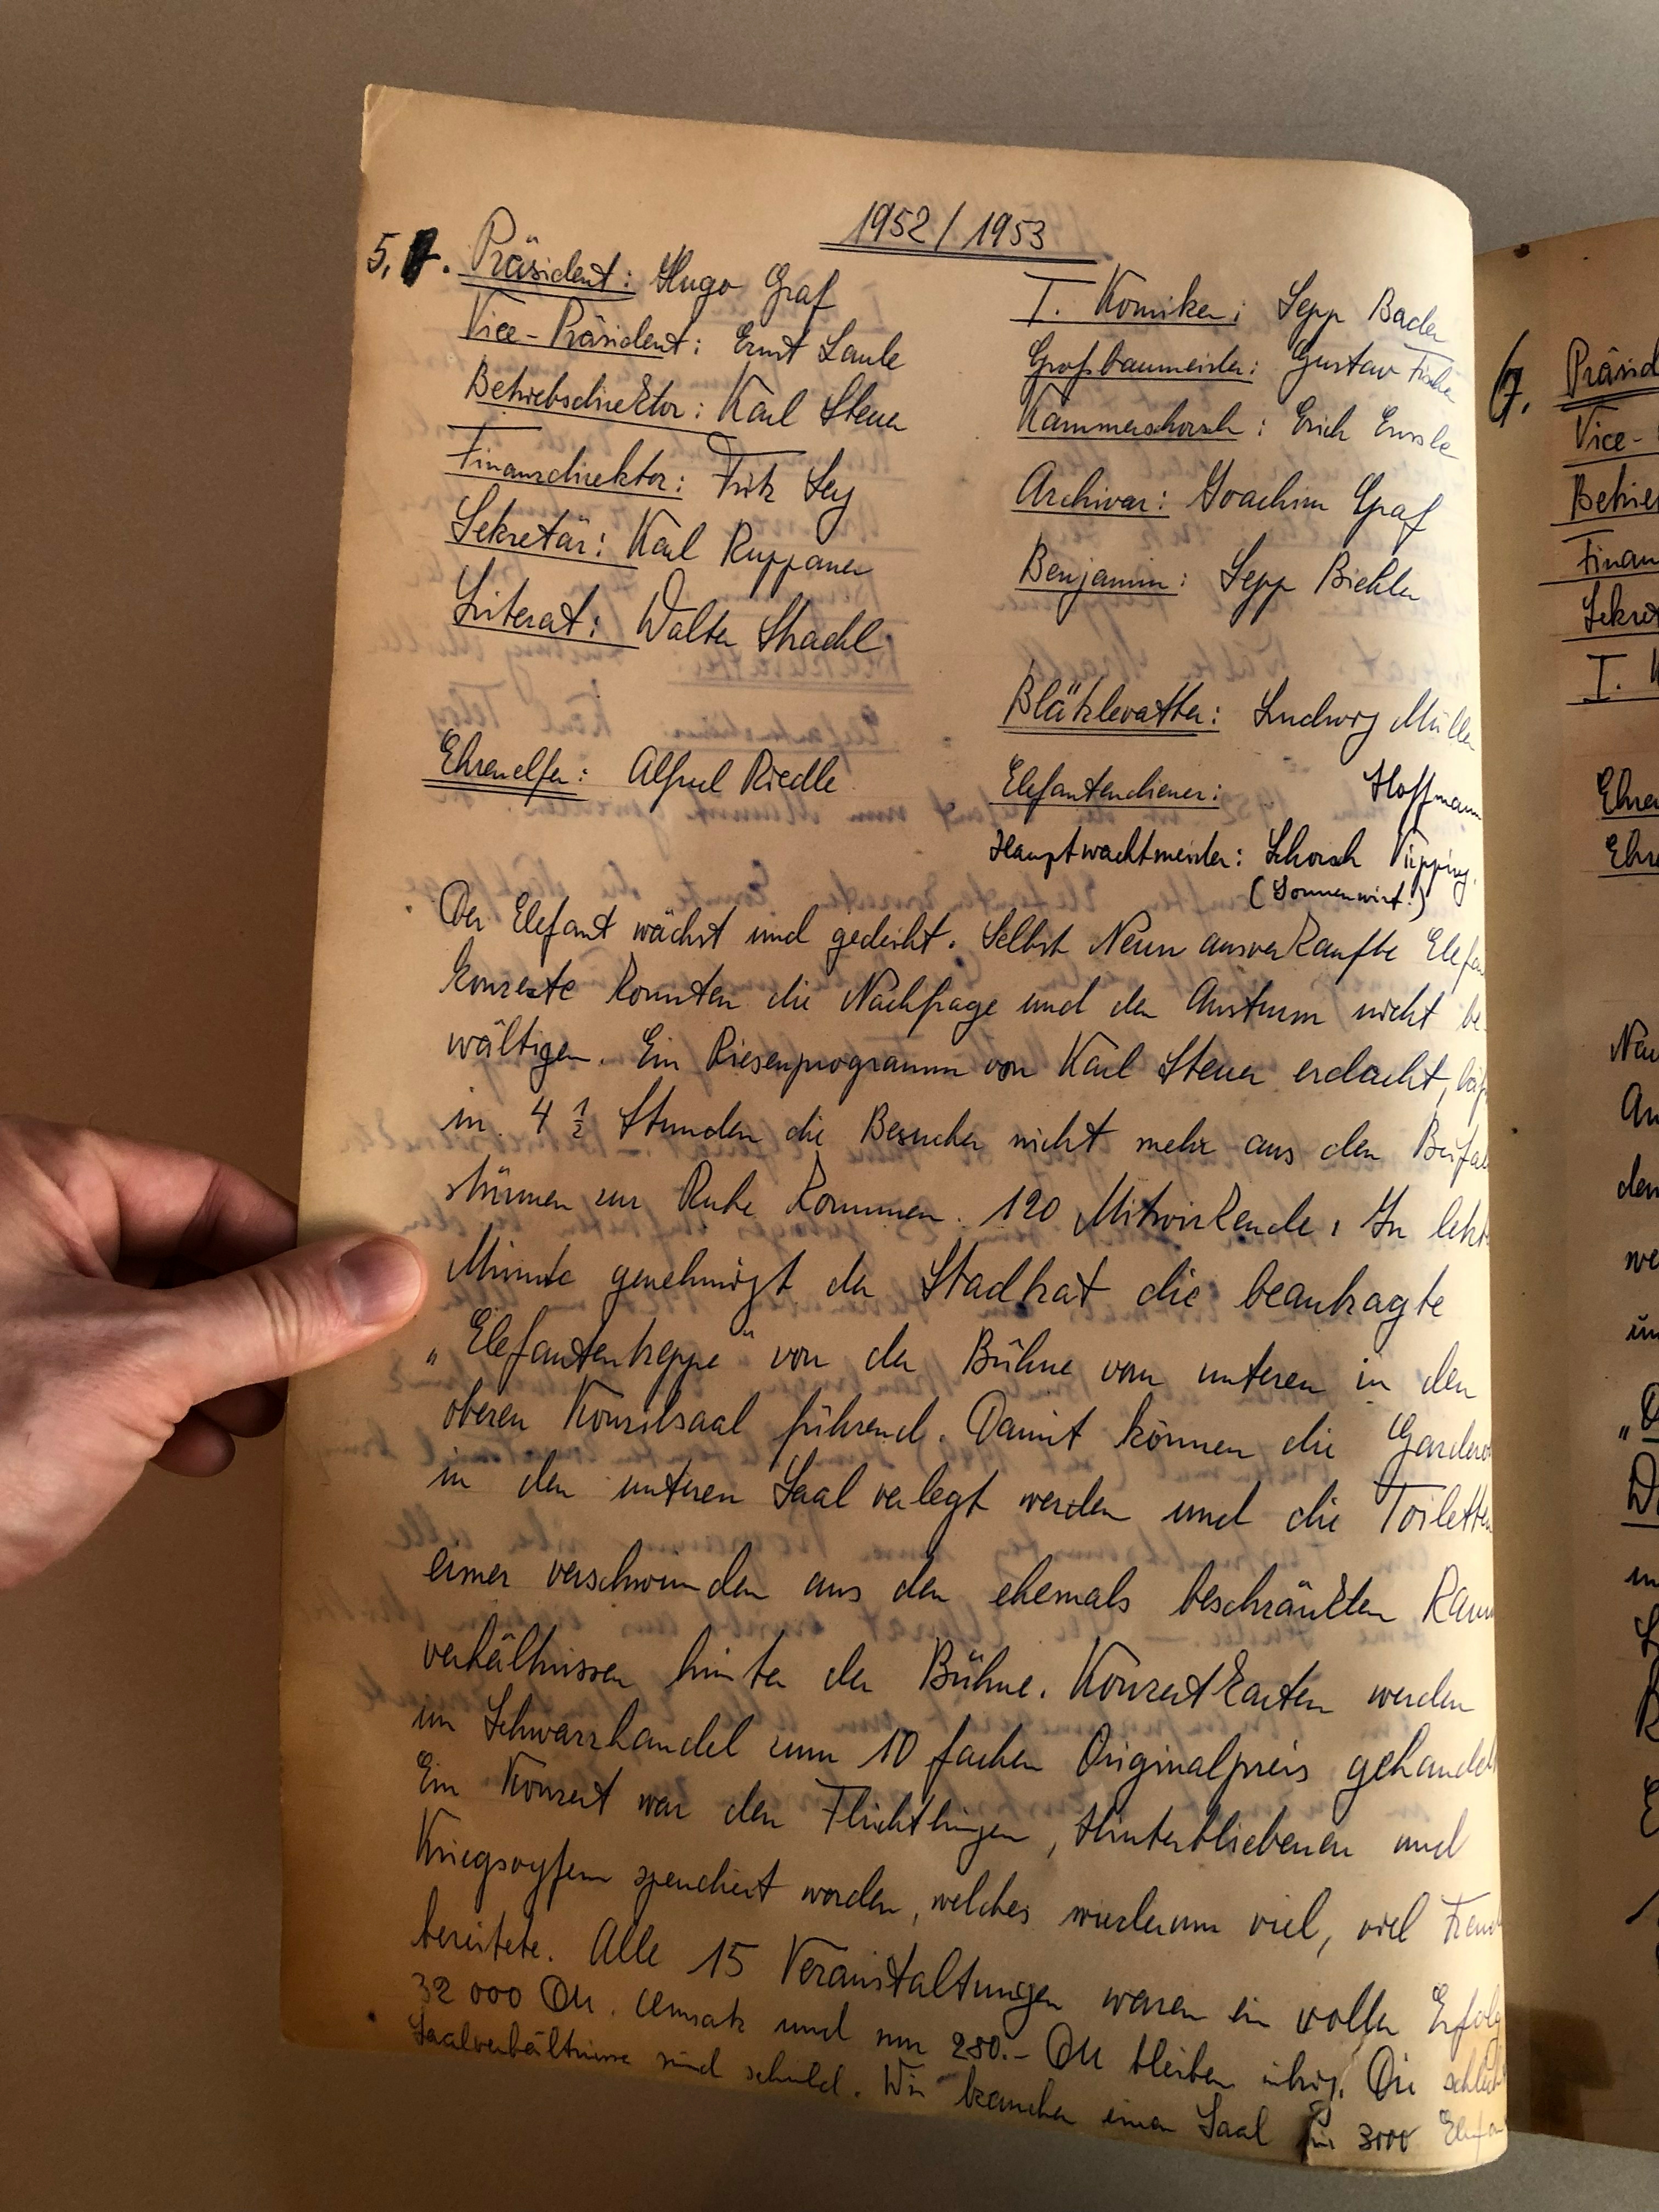 1952/1953
5. Präsident: Hugo Graf
Vice-Präsident: Ernst Laule
Betriebsdirektor: Karl Steuer
Finanzdirektor: Fritz Ley
Sekretär: Karl Ruppaner
Literat: Walter Stradel
Ehrenelfer: Alfred Riedle
I. Komiker: Sepp Bader
Großbaumeister: Gustav Fischer
Kammerschorsch: Erich
Archivar: Joachim Graf
Benjamin: Sepp Biehler
Blätzlevatter: Ludwig Müller
Elefantendiener: Hoffmann
Hauptwachtmeister: Schorsch
(Sonnenwirt!)
Der Elefant wächst und gedeiht. Selbst Neun ausverkaufte Elefa
konzerte konnten die Nachfrage und den Ansturm nicht be-
wältigen. Ein Riesenprogramm von Karl Steuer erdacht,
in 4 1/2 Stunden die Besucher nicht mehr aus den Beifal
stürmen zur Ruhe kommen. 120 Mitwirkende. In letzt
Minute genehmigt der Stadtrat die beantragte
„Elefantentreppe" von der Bühne vom unteren in den
oberen Konzilsaal führend. Damit können die Gardero
in den unteren Saal verlegt werden und die Toiletten
eimer verschwinden aus den ehemals beschränkten Raum
verhältnissen hinter der Bühne. Konzertkarten werden
im Schwarzhandel zum 10 fachen Originalpreis gehandel
Ein Konzert war den Flüchtlingen, Hinterbliebenen und
Kriegsopfern spendiert worden, welches wiederum viel, viel Freud
bereitete. Alle 15 Veranstaltungen waren ein voller Erfolg
32 000 DM. Umsatz und nur 280.- DM bleiben übrig. Die schlech
Saalverhältnisse sind schuld. Wir brauchen einen Saal für 3000 Elefan
6.
Präsid
Vice-
Betrie
Finan
Sekret
I. K
Ehre
Ehre